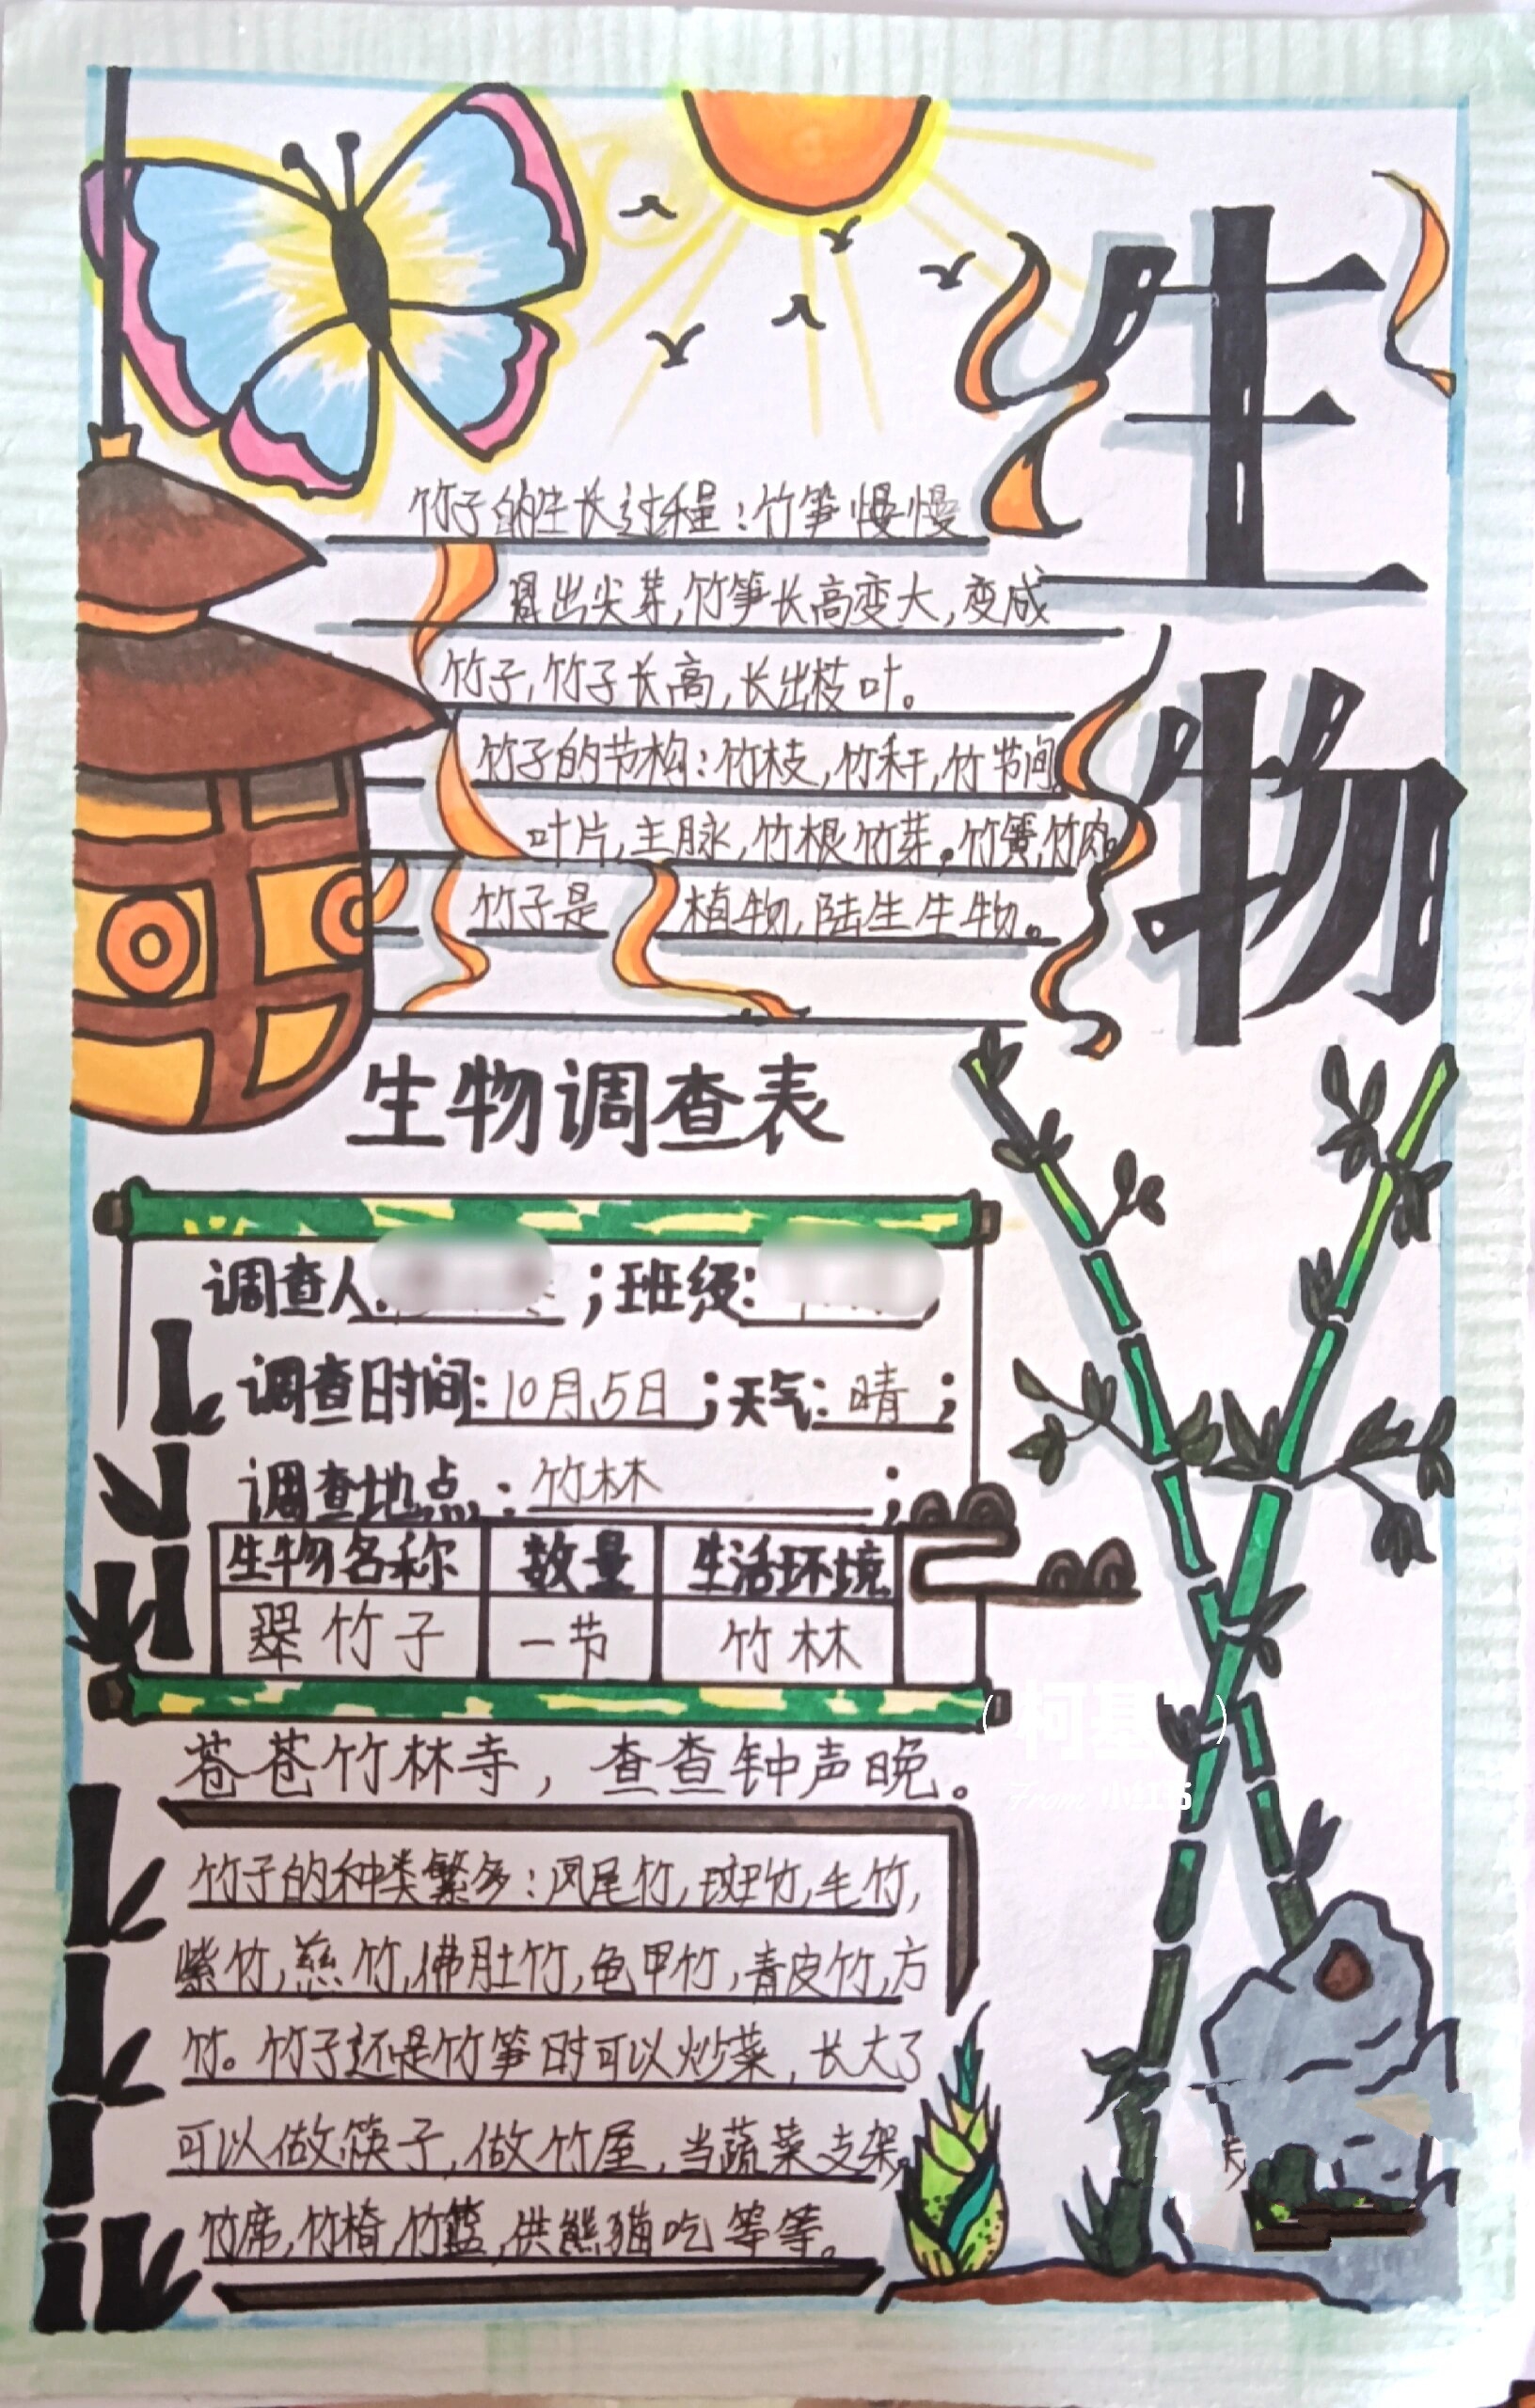 生物
竹子的生长过程:竹笋慢慢
冒出尖芽,竹笋长高变大,变成
竹子,竹子长高,长出枝叶。
竹子的节构:竹枝,竹秆,竹节间
叶片,主脉,竹根竹芽。竹簧,竹肉。
竹子是 植物,陆生生物。
生物调查表
调查人: ;班级:
调查日时间:10月5日;天气:晴;
调查地点:竹林;
生物名称 数量 生活环境
翠竹子 一节 竹林
苍苍竹林寺,查查钟声晚。
竹子的种类繁多:凤尾竹,斑竹,毛竹,
紫竹,慈竹,佛肚竹,龟甲竹,青皮竹,方
竹。竹子还是竹笋时可以炒菜,长大了
可以做筷子,做竹屋,当蔬菜支架,
竹席,竹椅,竹篮,供熊猫吃等等。
From 小红书